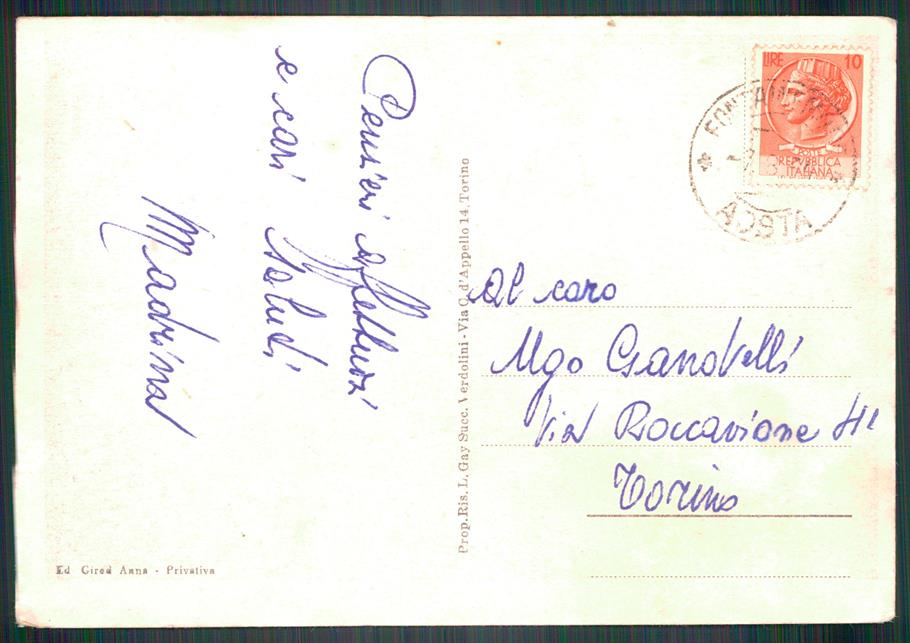 Pensieri affettuosi
e cari saluti
Madrina
Ed Gired Anna - Privativa
Prop. Ris. L. Gay Succ. Verdolini - Via C. d'Appello 14. Torino
LIRE 10
POSTE
REPVBBLICA
ITALIANA
AOSTA
Al caro
Ugo
Via Roccavione
Torino